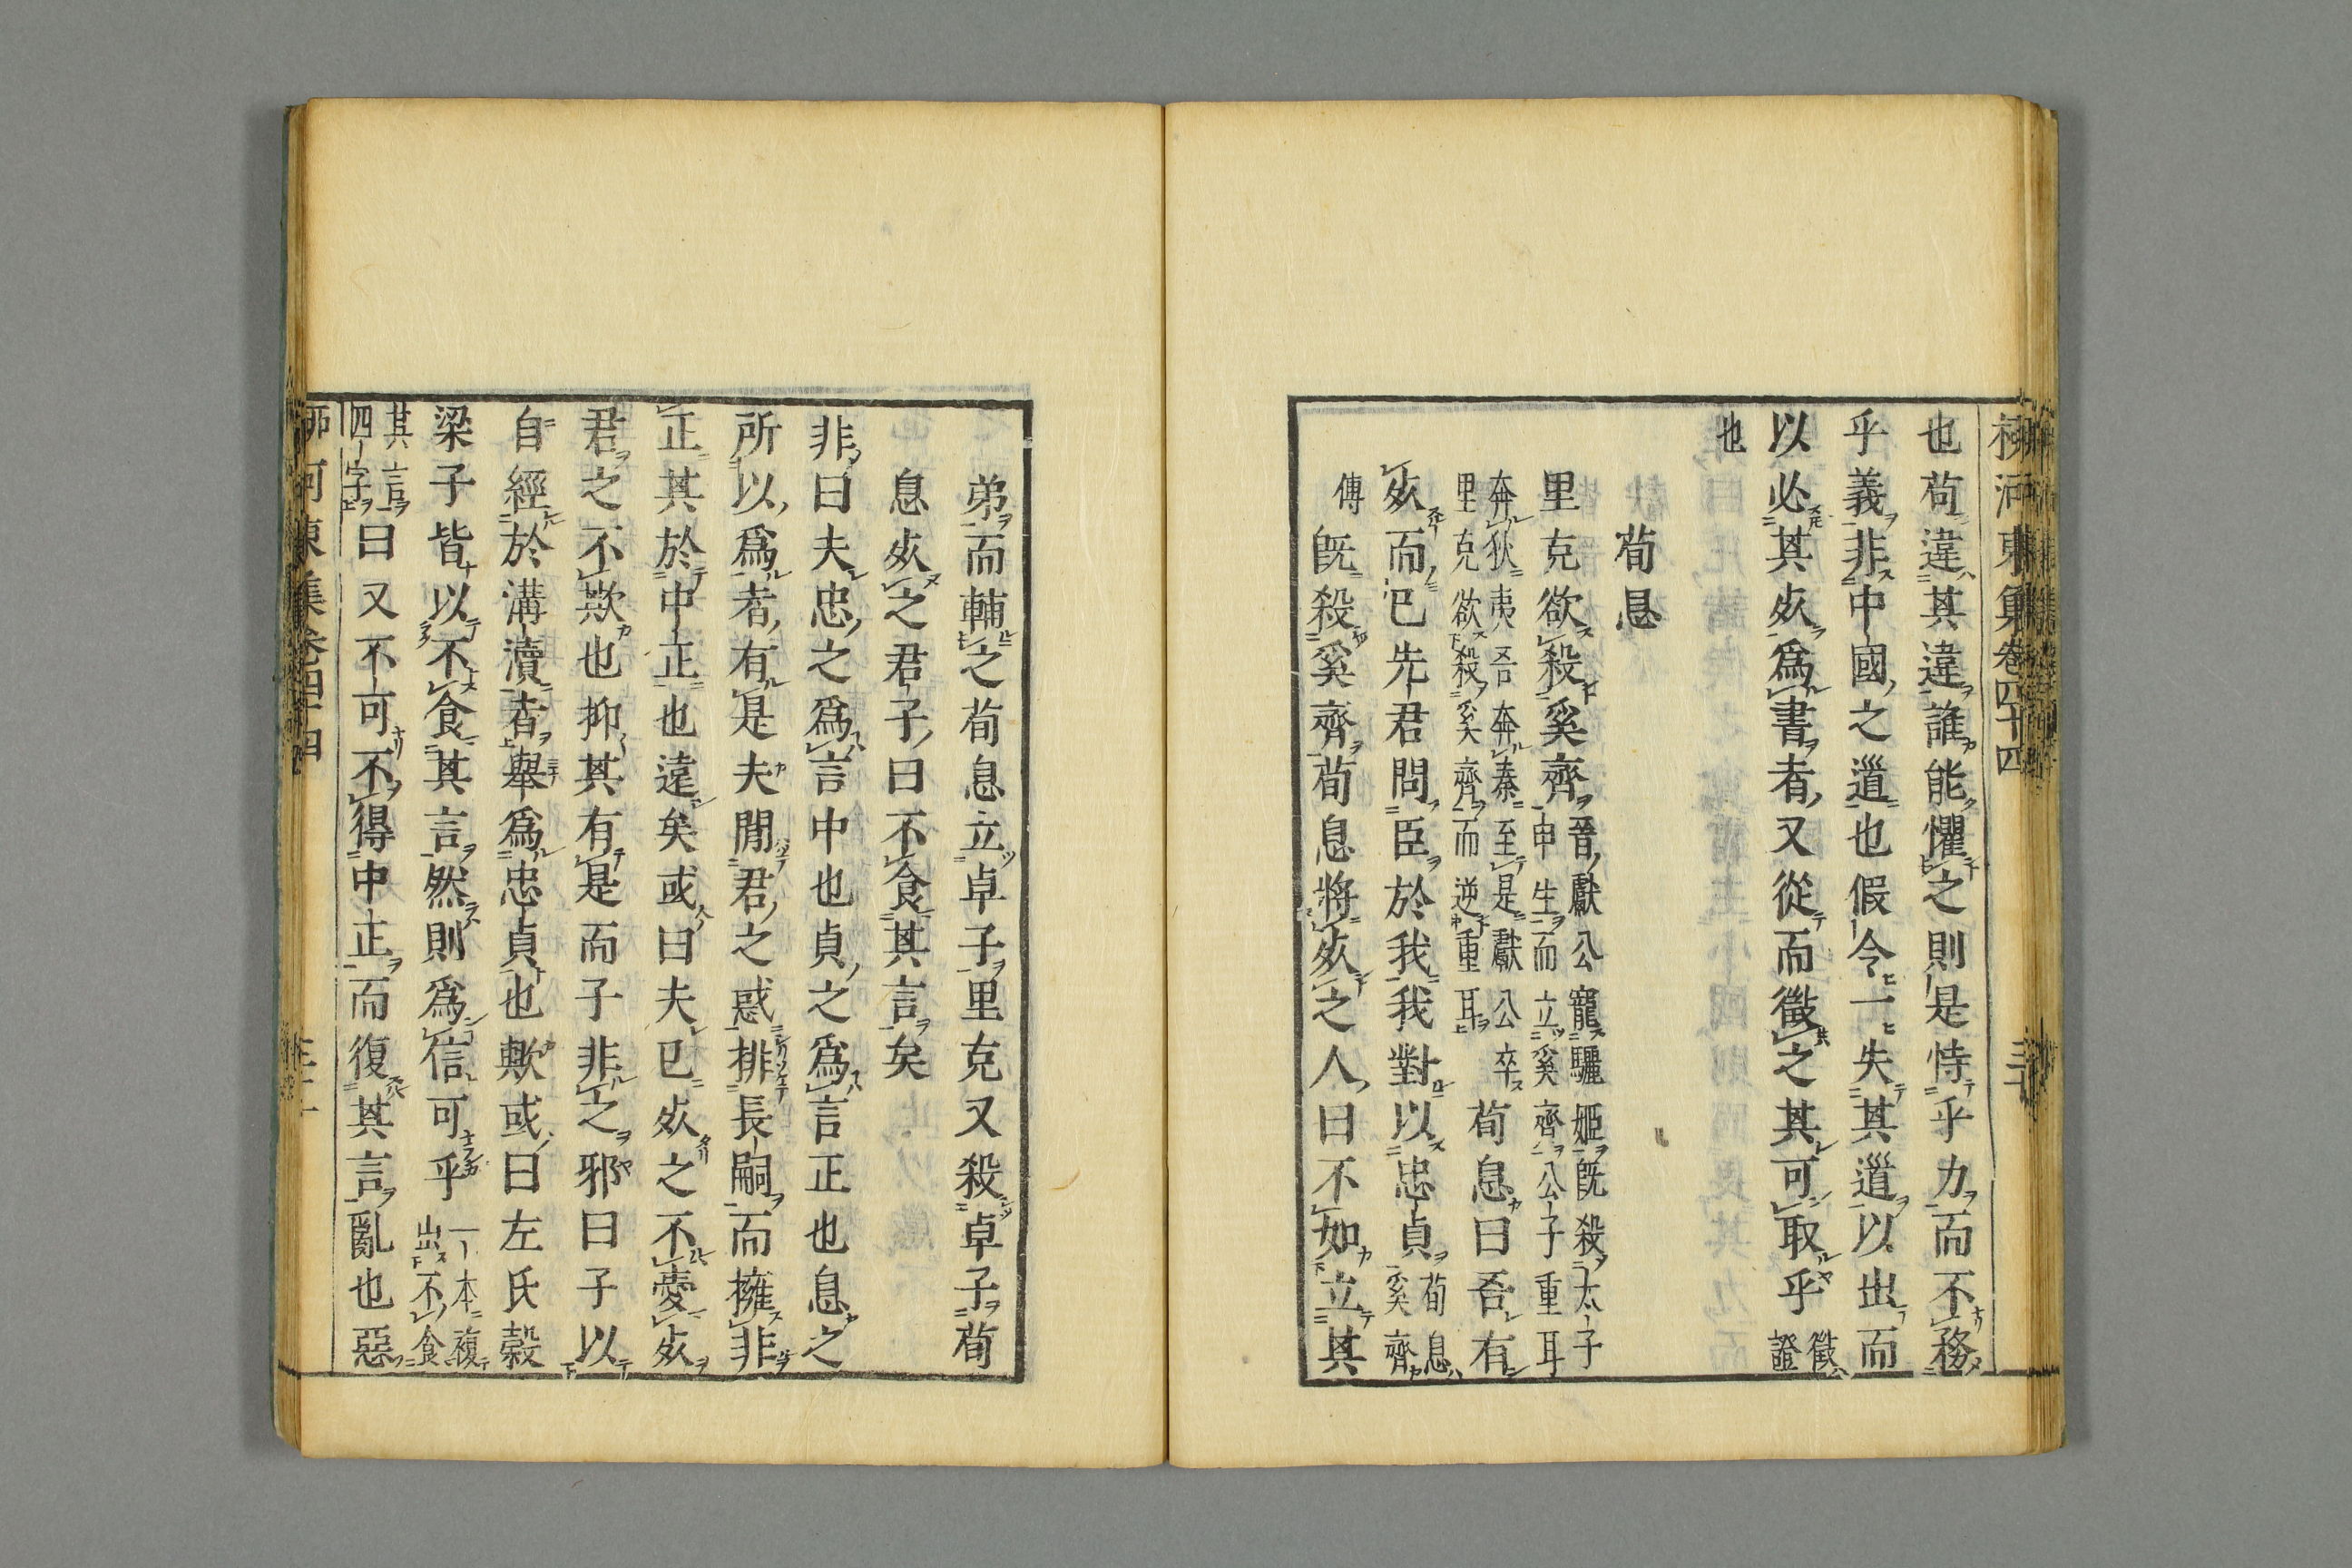 柳河東集卷四十四
也苟違其違誰能懼之則是恃乎力而不務
乎義非中國之道也假令一失其道以出而
以必其死爲書者又從而徵之其可取乎徵證
也
荀息
里克欲殺奚齊晉獻公寵驪姬既殺太子
申生而立奚齊公子重耳
奔狄夷吾奔秦至是獻公卒
里克欲殺奚齊而逆重耳
荀息曰吾有
死而已先君問臣於我我對以忠貞荀息
奚齊
傅既殺奚齊荀息將死之人曰不如立其
弟而輔之荀息立卓子里克又殺卓子荀
息死之君子曰不食其言矣
非曰夫忠之爲言中也貞之爲言正也息之
所以爲者有是夫閒君之惑排長嗣而擁非
正其於中正也遠矣或曰夫已死之不愛死
君之不欺也抑其有是而子非之邪曰子以
自經於溝瀆者舉爲忠貞也歟或曰左氏穀
梁子皆以不食其言然則爲信可乎一本複
出不食
其言
四字
曰又不可不得中正而復其言亂也惡
柳河東集卷四十四